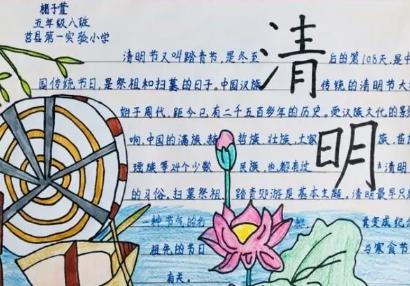 子萱
五年级八班
莒县第一实验小学
清明
清明节又叫踏青节,是冬至后的第108天,是中
国传统节日,是祭祖和扫墓的日子。中国汉族传统的清明节大
始于周代,距今已有二千五百多年的历史。受汉族文化的影
响,中国的满族、哲族、壮族、族、苗
瑶族等24个少民族,也都有过清明
的习俗。扫墓祭祖、踏青郊游是基本主题。清明最早只
一种节气的变成纪
祖先的节日与寒食节
有关。